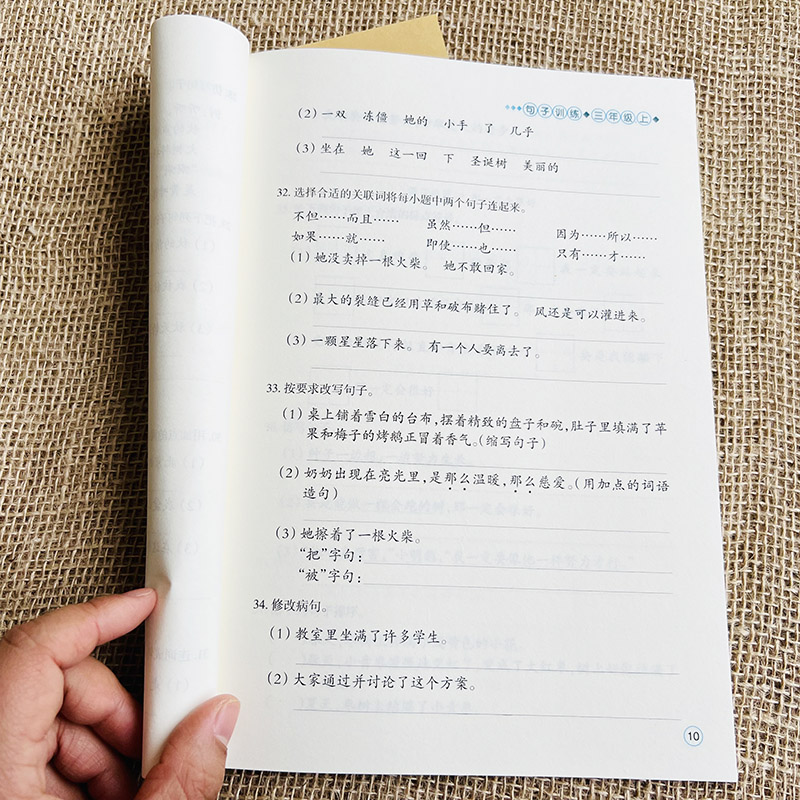 句子训练 三年级上
(2) 一双 冻僵 她的 小手 了 几乎
(3) 坐在 她 这一回 下 圣诞树 美丽的
32. 选择合适的关联词将每小题中两个句子连起来。
不但……而且…… 虽然……但…… 因为……所以……
如果……就…… 即使……也…… 只有……才……
(1) 她没卖掉一根火柴。 她不敢回家。
(2) 最大的裂缝已经用草和破布赌住了。 风还是可以灌进来。
(3) 一颗星星落下来。 有一个人要离去了。
33. 按要求改写句子。
(1) 桌上铺着雪白的台布,摆着精致的盘子和碗,肚子里填满了苹
果和梅子的烤鹅正冒着香气。(缩写句子)
(2) 奶奶出现在亮光里,是那么温暖,那么慈爱。(用加点的词语
造句)
(3) 她擦着了一根火柴。
“把”字句:
“被”字句:
34. 修改病句。
(1) 教室里坐满了许多学生。
(2) 大家通过并讨论了这个方案。
10